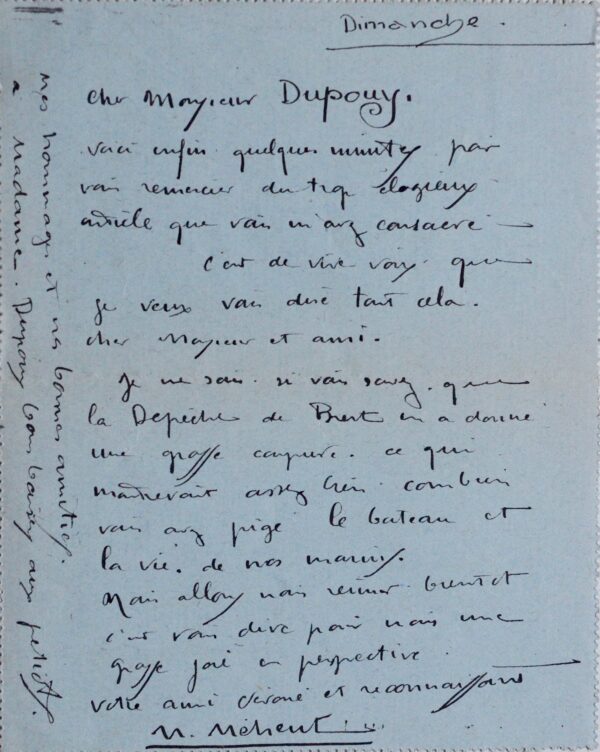 Dimanche.
cher Monsieur Dupouy.
voici enfin quelques minutes pour
vous remercier du trop élogieux
article que vous m'avez consacré
c'est de vive voix que
je veux vous dire tout cela.
cher Monsieur et ami.
Je ne sais si vous savez que
la Depêche de Brest en a donné
une grosse coupure. ce qui
assez bien combien
vous avez pigé le bateau et
la vie. de nos marins.
Mais allons nous réunir bientot
c'est vous dire pour nous une
grosse joie en perspective.
votre ami dévoué et reconnaissant
M. Méheut
Mes hommages et nos bonnes amitiés.
a Madame. Dupouy bons baisers aux petiots.